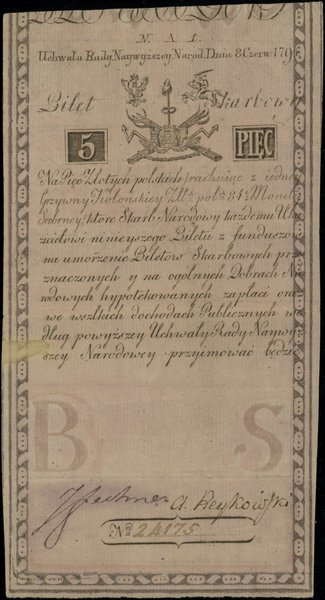 N. A 1.
Uchwała Rady Naywyższey Narod. Dnia 8 Czerw. 179
Bilet Skarbowy
5 PIĘĆ
Na Pięć Złotych polskich rachuiąc z iedney
Grzywny Kolońskiey Zł. pol. 84½ Monetą
Srebrney, które Skarb Narodowy każdemu Uka
zicielowi ninieyszego Biletu z funduszow
na umorzenie Biletow Skarbowych prze
znaczonych y na ogolnych Dobrach Na
rodowych hypotekowanych zapłaci oraz
we wszltkich dochodach Publicznych we
dług powyższey Uchwały Rady Naywyż
szey Narodowey przyimować będzie
B S
A. Reykowski
No 24175